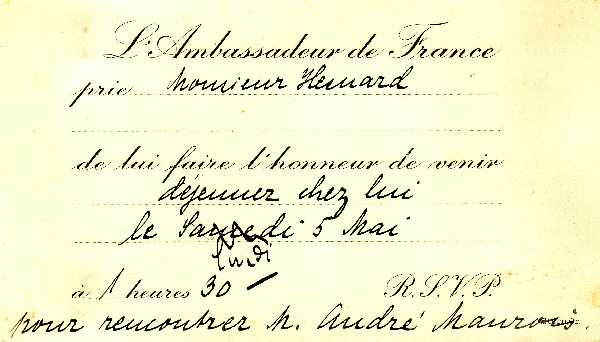 L'Ambassadeur de France
prie Monsieur Hemard
de lui faire l'honneur de venir
déjeuner chez lui
le Samedi 5 Mai
lundi
à 1 heures 30
R.S.V.P.
pour rencontrer M. André Maurois.